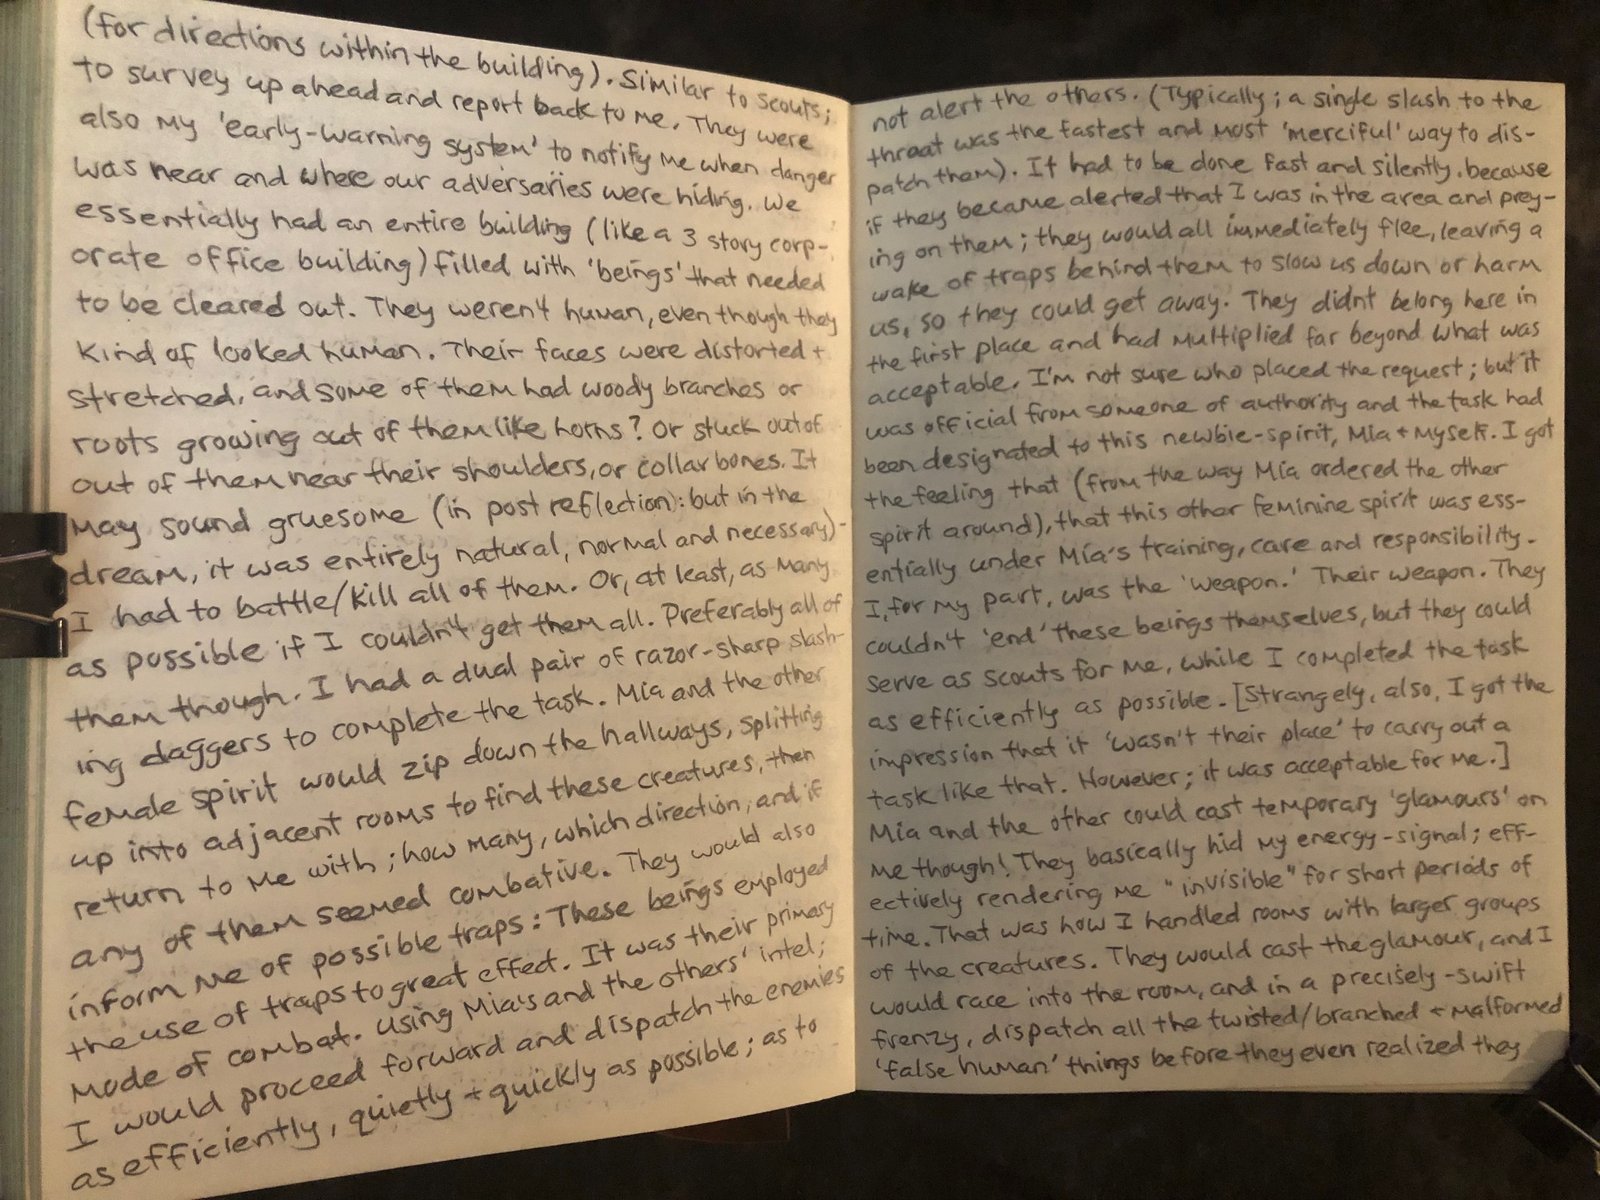 (for directions within the building). Similar to scouts;
to survey up ahead and report back to me. They were
also my 'early-warning system' to notify me when danger
was near and where our adversaries were hiding. We
essentially had an entire building (like a 3 story corp-
orate office building) filled with 'beings' that needed
to be cleared out. They weren't human, even though they
kind of looked human. Their faces were distorted +
stretched, and some of them had woody branches or
roots growing out of them like horns? Or stuck out of
out of them near their shoulders, or collar bones. It
may sound gruesome (in post reflection): but in the
dream, it was entirely natural, normal and necessary)-
I had to battle/kill all of them. Or, at least, as many
as possible if I couldn't get them all. Preferably all of
them though. I had a dual pair of razor-sharp slash-
ing daggers to complete the task. Mia and the other
female spirit would zip down the hallways, splitting
up into adjacent rooms to find these creatures, then
return to me with; how many, which direction, and if
any of them seemed combative. They would also
inform me of possible traps: These beings employed
the use of traps to great effect. It was their primary
mode of combat. Using Mia's and the others' intel;
I would proceed forward and dispatch the enemies
as efficiently, quietly + quickly as possible; as to
not alert the others. (Typically; a single slash to the
throat was the fastest and most 'merciful' way to dis-
patch them). It had to be done fast and silently. because
if they became alerted that I was in the area and prey-
ing on them; they would all immediately flee, leaving a
wake of traps behind them to slow us down or harm
us, so they could get away. They didnt belong here in
the first place and had multiplied far beyond what was
acceptable. I'm not sure who placed the request; but it
was official from someone of authority and the task had
been designated to this newbie-spirit, Mia + myself. I got
the feeling that (from the way Mia ordered the other
spirit around), that this other feminine spirit was ess-
entially under Mia's training, care and responsibility.
I, for my part, was the 'weapon.' Their weapon. They
couldn't 'end' these beings themselves, but they could
serve as scouts for me, while I completed the task
as efficiently as possible. [Strangely, also, I got the
impression that it 'wasn't their place' to carry out a
task like that. However; it was acceptable for me.]
Mia and the other could cast temporary 'glamours' on
me though! They basically hid my energy-signal; eff-
ectively rendering me "invisible" for short periods of
time. That was how I handled rooms with larger groups
of the creatures. They would cast the glamour, and I
would race into the room, and in a precisely-swift
frenzy, dispatch all the twisted/branched + malformed
'false human' things before they even realized they